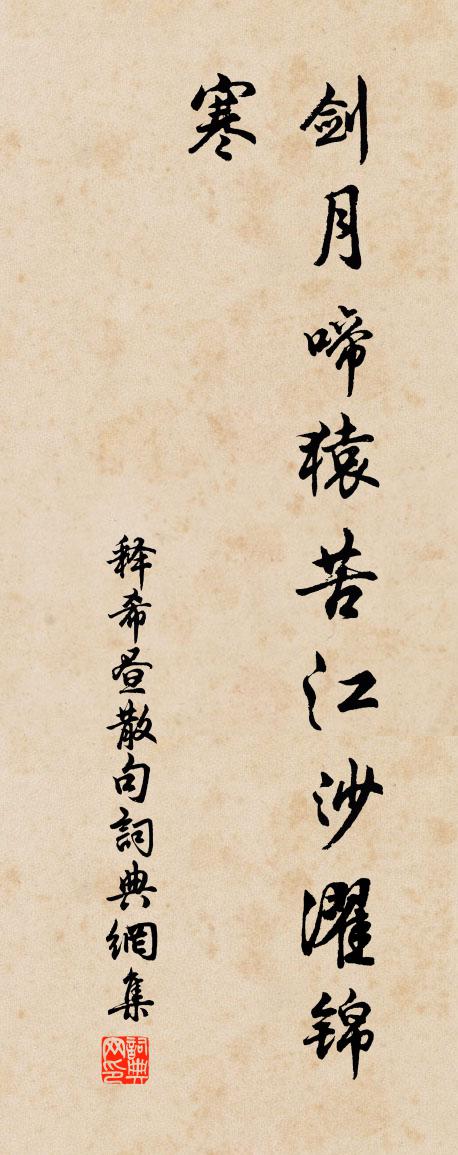 剑月啼猿苦江沙濯锦
寒
释希昼散句詞典網集
詞典网印